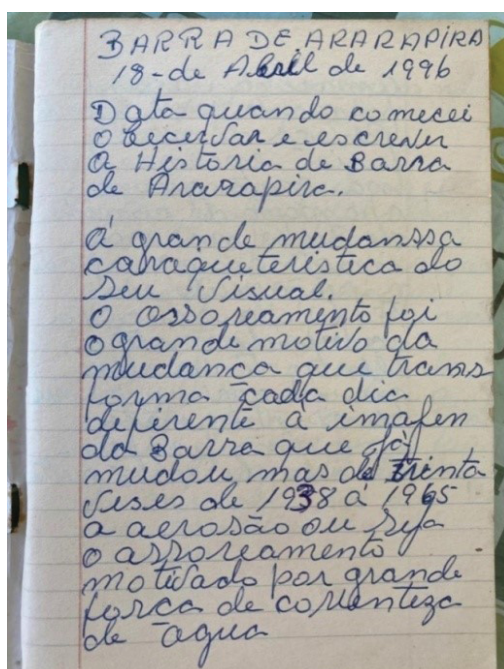 BARRA DE ARARAPIRA
18-de Abril de 1996
Data quando comecei
O becervar e escrever
a Historia de Barra
de Ararapira.
á grande mudanssa
caraqueteristica do
seu visual.
O assoreamento foi
o grande motivo da
mudança que trans
forma cada dia
diferente a imafen
da Barra que já
mudou mas de trinta
veses de 1938 á 1965
a aerosão ou seja
o assoreamento
motivado por grande
força de correnteza
de agua